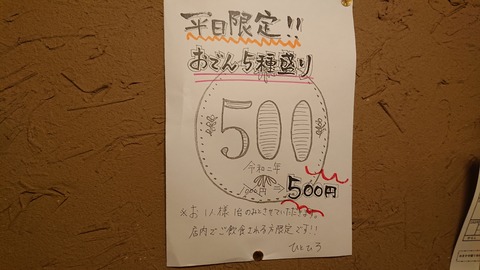 平日限定!!
おでん5種盛り
500
令和二年
500円
※お1人様1皿のみとさせていただきます。
店内でご飲食される方限定です!!
ひとひろ